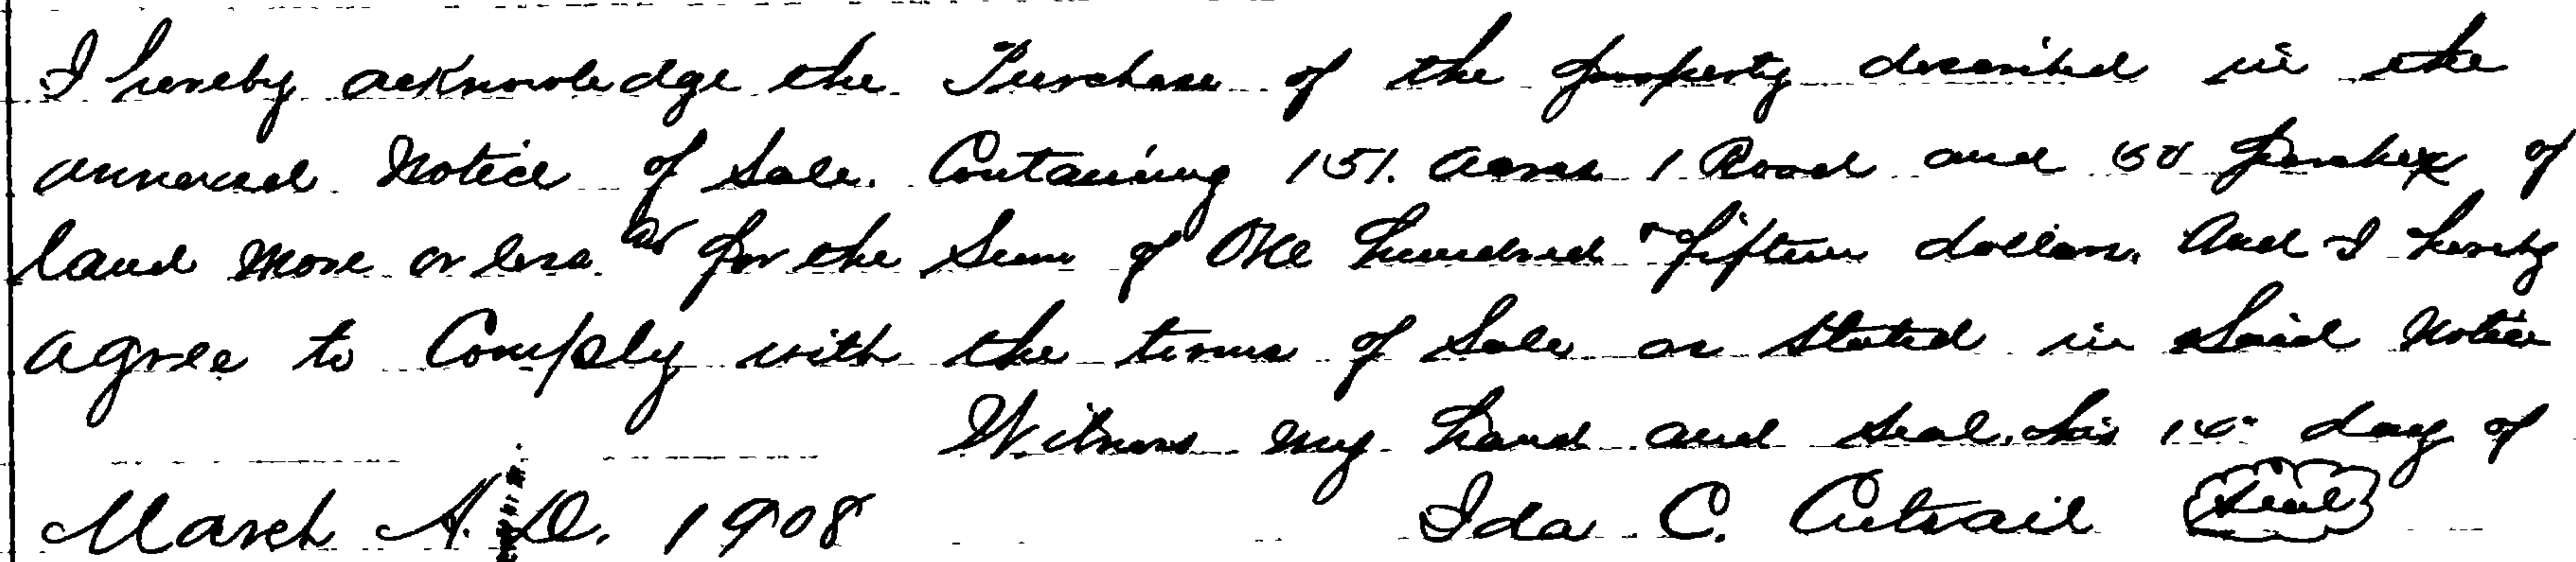 I hereby acknowledge the Purchase of the property described in the
annexed Notice of Sale. Containing 151. acres 1 Rood and perches of
land more or less at for the Sum of One hundred fifteen dollars. And I hereby
agree to Comply with the terms of Sale as Stated in Said Notice
Witness my hand and seal this day of
March A.D. 1908 Ida C. Cutsail Seal